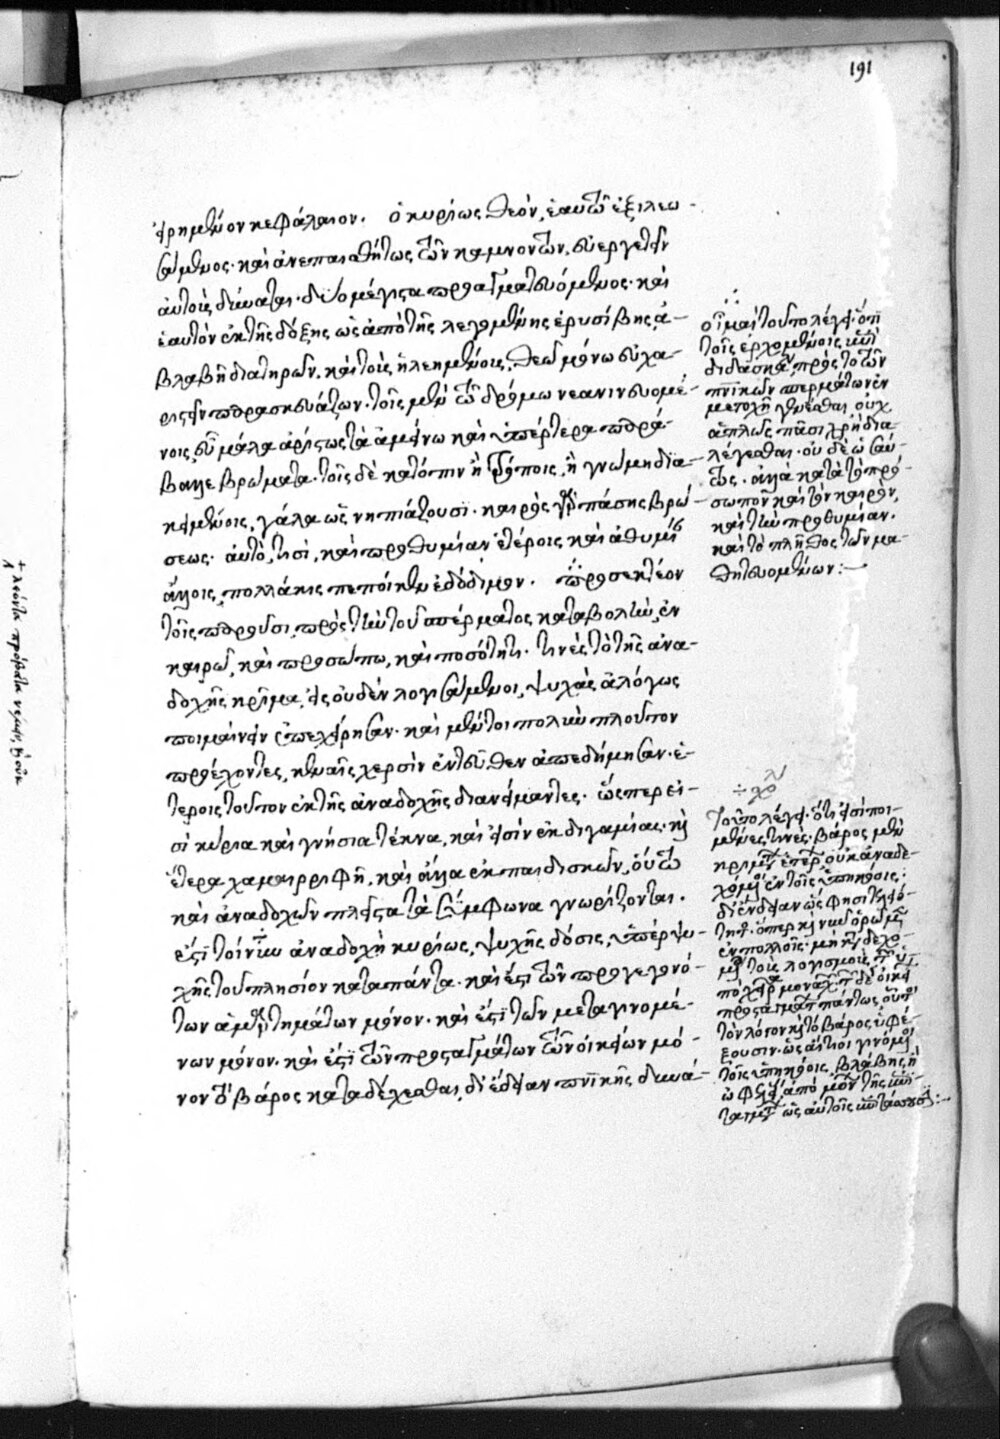 εἰρημένον κεφάλαιον. ὁ κυρίως θεὸν, ἑαυτῷ ἐξιλεω-
σάμενος. καὶ ἀνεπαισθήτως τῶν καμνόντων, εὐεργετεῖν
αὐτοὺς δύναται. δύο μέγιστα πραγματευόμενος. καὶ
ἑαυτὸν ἐκ τῆς δόξης ὡς ἀπὸ τῆς λεγομένης ἐρυσίβης, ἀ-
βλαβῆ διατηρῶν. καὶ τοὺς ἠλεημένους, θεῷ μόνῳ εὐχα-
ριστεῖν παρασκευάζων. τοῖς μὲν τῷ δρόμῳ νεανιευομέ-
νοις, εὖ μάλα ἀρίστως τὰ ἀμείνω καὶ ὑπέρτερα παρά-
βαλλε βρώματα. τοῖς δὲ κατόπιν ἢ τρόποις, ἢ γνώμῃ δια-
κειμένοις, γάλα ὡς νηπιάζουσι. καιρὸς γὰρ πάσης βρώ-
σεως. αὐτό, τισὶ, καὶ προθυμίαν ἑτέροις καὶ ἀθυμίαν
ἄλλοις πολλάκις πεποίηκεν ἐδώδιμον. προσεκτέον
τοῖς παροῦσι πρὸς τὴν τοῦ σπέρματος καταβολὴν, ἐν
καιρῷ, καὶ προσώπῳ, καὶ ποσότητι. τινὲς τὸ τῆς ἀνα-
δοχῆς κρῖμα, εἰς οὐδὲν λογισάμενοι, ψυχὰς ἀλόγως
ποιμαίνειν ἐπεχείρησαν. καὶ μέντοι πολὺν πλοῦτον
προέχοντες, κεναῖς χερσὶν ἐντεῦθεν ἀπεδήμησαν. ἑ-
τέροις τοῦτον ἐκ τῆς ἀναδοχῆς διανείμαντες. ὥσπερ εἰ-
σὶ κύρια καὶ γνήσια τέκνα, καὶ εἰσὶν ἐκ διγαμίας. καὶ
ἕτερα χαμαιρριφῆ, καὶ ἄλλα ἐκ παιδισκῶν, οὕτω
καὶ ἀναδοχῶν πλεῖστα τὰ σύμφωνα γνωρίζονται.
ἔστι τοίνυν ἀναδοχὴ κυρίως, ψυχῆς δόσις, ὑπὲρ ψυ-
χῆς τοῦ πλησίον κατὰ πάντα. καὶ ἔστι τῶν προγεγονό-
των ἁμαρτημάτων μόνον. καὶ ἔστι τῶν μεταγινομέ-
νων μόνον. καὶ ἔστι τῶν προσταγμάτων τῶν οἰκείων μό-
νον τὸ βάρος καταδέχεσθαι, δι' ἔνδειαν πνικῆς δυνά-
191
οἶμαι τοῦτο λέγει. ὅτι
τοῖς ἐρχομένοις καὶ
διδασκαλ πρὸς τὸ τῶν
πνικῶν σπερμάτων ἐν
μετοχῇ γενέσθαι, οὐχ
ἁπλῶς πᾶσι χρὴ δια-
λέγεσθαι. οὐδὲ ὡσαύ-
τως. ἀλλὰ κατὰ τὸ πρό-
σωπον καὶ τὸν καιρὸν,
καὶ τὴν προθυμίαν.
καὶ τὸ πλῆθος τῶν μα-
θητευομένων:-
σχο
Τοῦτο λέγει. ὅτι εἰσὶ ποι-
μένες τινὲς. βάρος μὲν
οὐκ ἀναδε-
ἐν τοῖς ὑπηκόοις.
δι' ἔνδειαν ὡς φησι
ὅπερ καὶ νῦν ὁρῶμεν
ἐν πολλοῖς. μὴ
τοὺς λογισμοὺς
πάντως
τὸν λόγον καὶ τὸ βάρος ὑφέ-
ξουσιν. ὡς αἴτιοι γινόμενοι
τοῖς ὑπηκόοις, βλάβης ἢ
ὠφελείας
ὡς αὐτοῖς